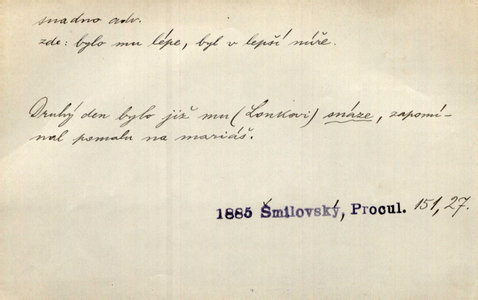 snadno adv.
zde: bylo mu lépe, byl v lepší míře.
Druhý den bylo již mu (Lonkovi) snáze, zapomí-
nal pomalu na mariáš.
1885 Šmilovský, Procul. 151, 27.